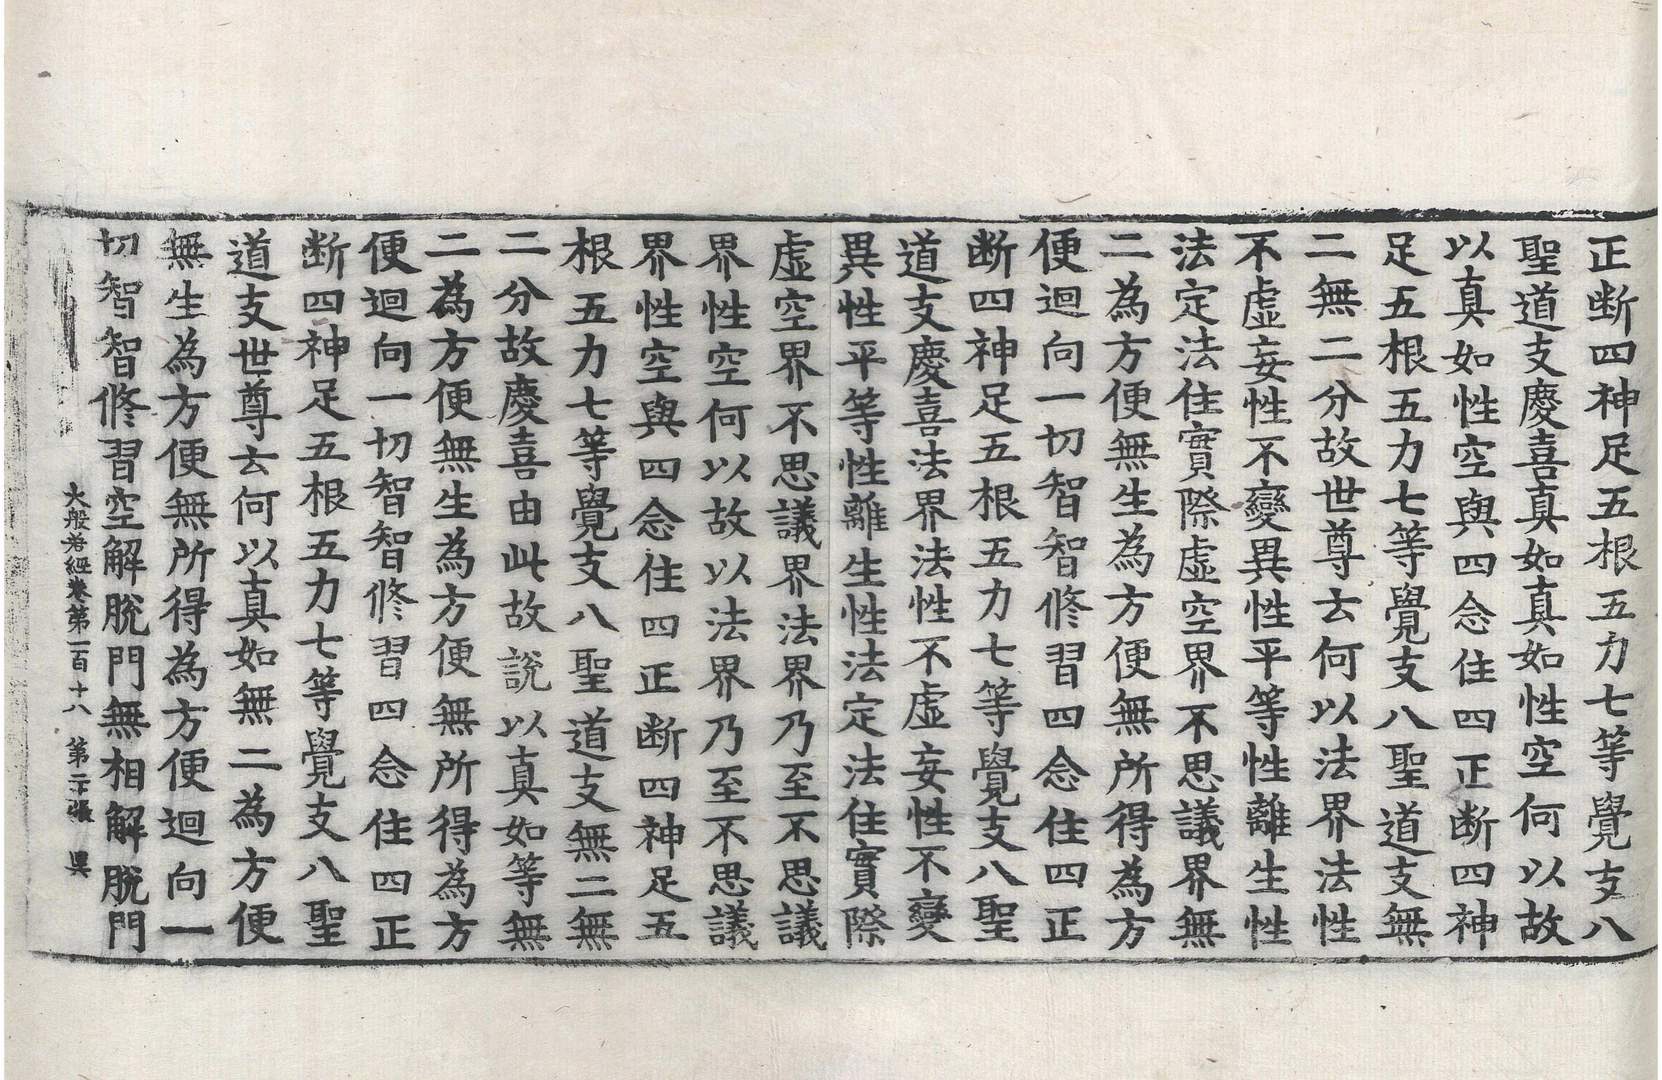 正断四神足五根五力七等覺支八
聖道支慶喜真如真如性空何以故
以真如性空與四念住四正断四神
足五根五力七等覺支八聖道支無
二無二分故世尊云何以法界法性
不虛妄性不變異性平等性離生性
法定法住實際虛空界不思議界無
二為方便無生為方便無所得為方
便迴向一切智智修習四念住四正
断四神足五根五力七等覺支八聖
道支慶喜法界法性不虛妄性不變
異性平等性離生性法定法住實際
虛空界不思議界法界乃至不思議
界性空何以故以法界乃至不思議
界性空與四念住四正断四神足五
根五力七等覺支八聖道支無二無
二分故慶喜由此故說以真如等無
二為方便無生為方便無所得為方
便迴向一切智智修習四念住四正
断四神足五根五力七等覺支八聖
道支世尊云何以真如無二為方便
無生為方便無所得為方便迴向一
切智智修習空解脫門無相解脫門
大般若經卷第一百十八 第二十張 昃